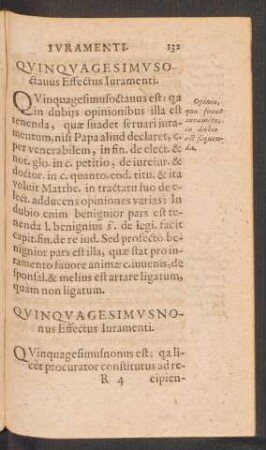 IVRAMENTI. 132
QVINQVAGESIMVSO-
ctauus Effectus Iuramenti.
QVinquagesimusoctauus est: qa
in dubijs opinionibus illa est
tenenda, quæ suadet seruari iura-
mentum, nisi Papa aliud declaret, c.
per venerabilem, in fin. de elect. &
not. glo. in c. petitio, de iureiur. &
doctor. in c. quanto. eod. titu. & ita
voluit Matthe. in tractatu suo de e-
lect. adducens opiniones varias: In
dubio enim benignior pars est te-
nenda l. benignius ff. de legi. facit
capit. fin. de re iud. Sed profectò be-
nignior pars est illa, quæ stat pro iu-
ramento fauore animæ c. iuuenis, de
sponsal. & melius est artare ligatum,
quàm non ligatum.
Opinio,
quæ fauet
iuramẽto,
in dubio
est sequen-
da.
QVINQVAGESIMVSNO-
nus Effectus Iuramenti.
QVinquagesimusnonus est: qa li-
cèt procurator constitutus ad re-
R 4 cipien-